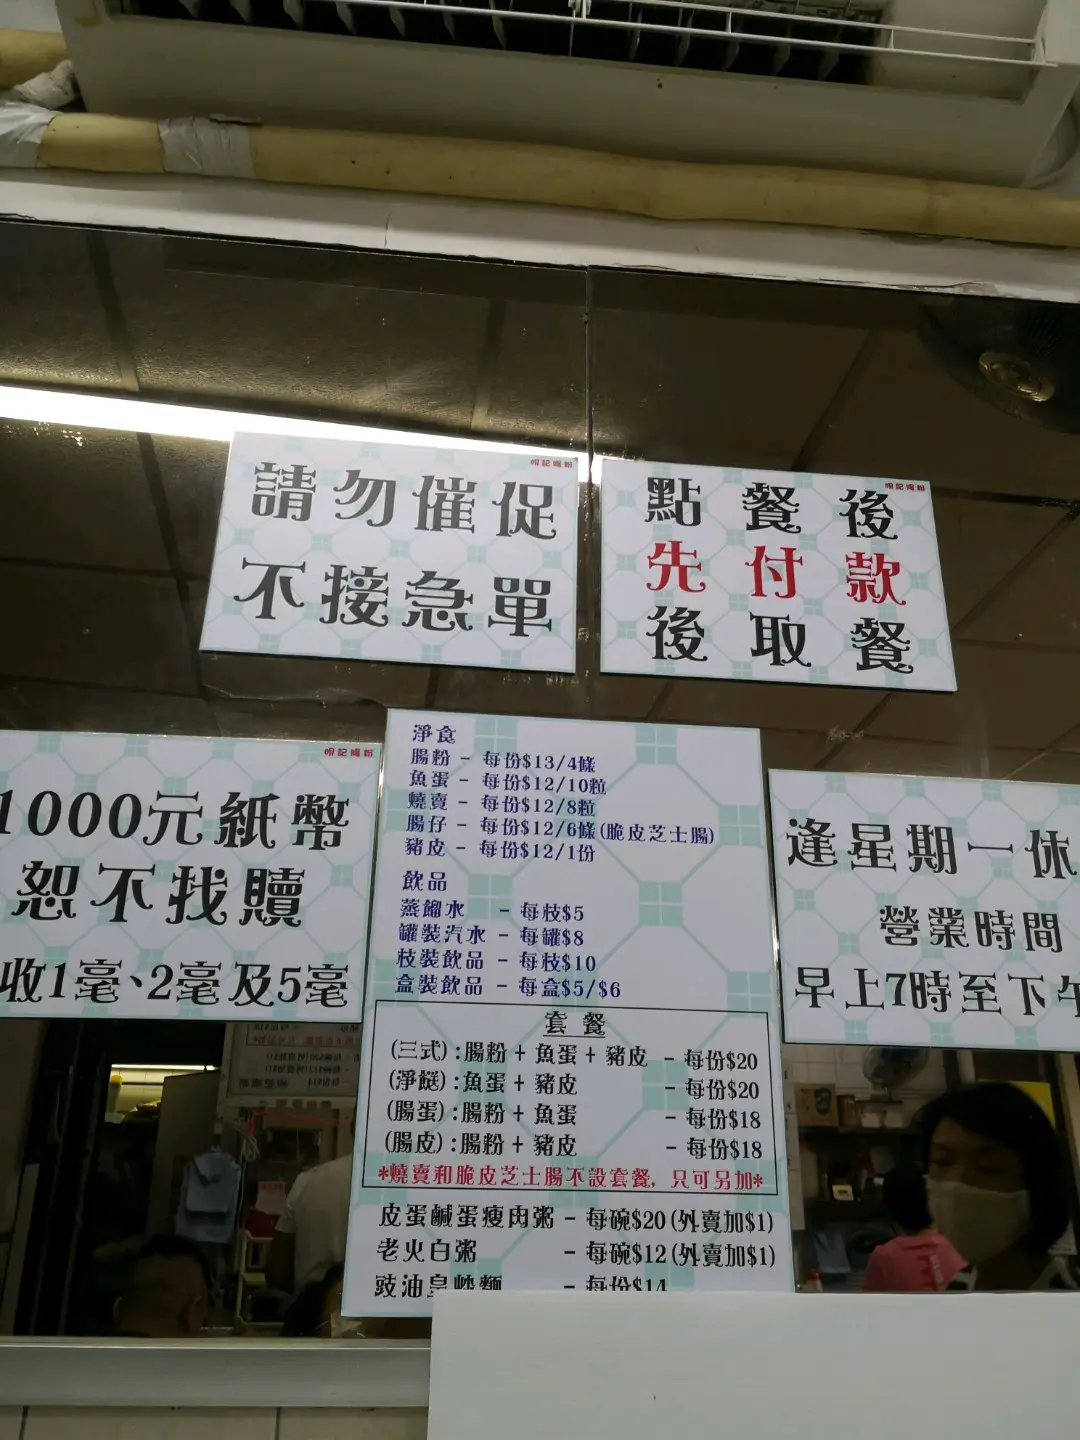 請勿催促
不接急單
點餐後
先付款
後取餐
1000元紙幣
恕不找贖
收1毫、2毫及5毫
淨食
腸粉 - 每份$13/4條
魚蛋 - 每份$12/10粒
燒賣 - 每份$12/8粒
腸仔 - 每份$12/6條(脆皮芝士腸)
豬皮 - 每份$12/1份
飲品
蒸餾水 - 每枝$5
罐裝汽水 - 每罐$8
枝裝飲品 - 每枝$10
盒裝飲品 - 每盒$5/$6
套餐
(三式):腸粉+魚蛋+豬皮 - 每份$20
(淨餸):魚蛋+豬皮 - 每份$20
(腸蛋):腸粉+魚蛋 - 每份$18
(腸皮):腸粉+豬皮 - 每份$18
*燒賣和脆皮芝士腸不設套餐, 只可另加*
皮蛋鹹蛋瘦肉粥 - 每碗$20(外賣加$1)
老火白粥 - 每碗$12(外賣加$1)
豉油皇炒麵 - 每份$14
逢星期一休
營業時間
早上7時至下午